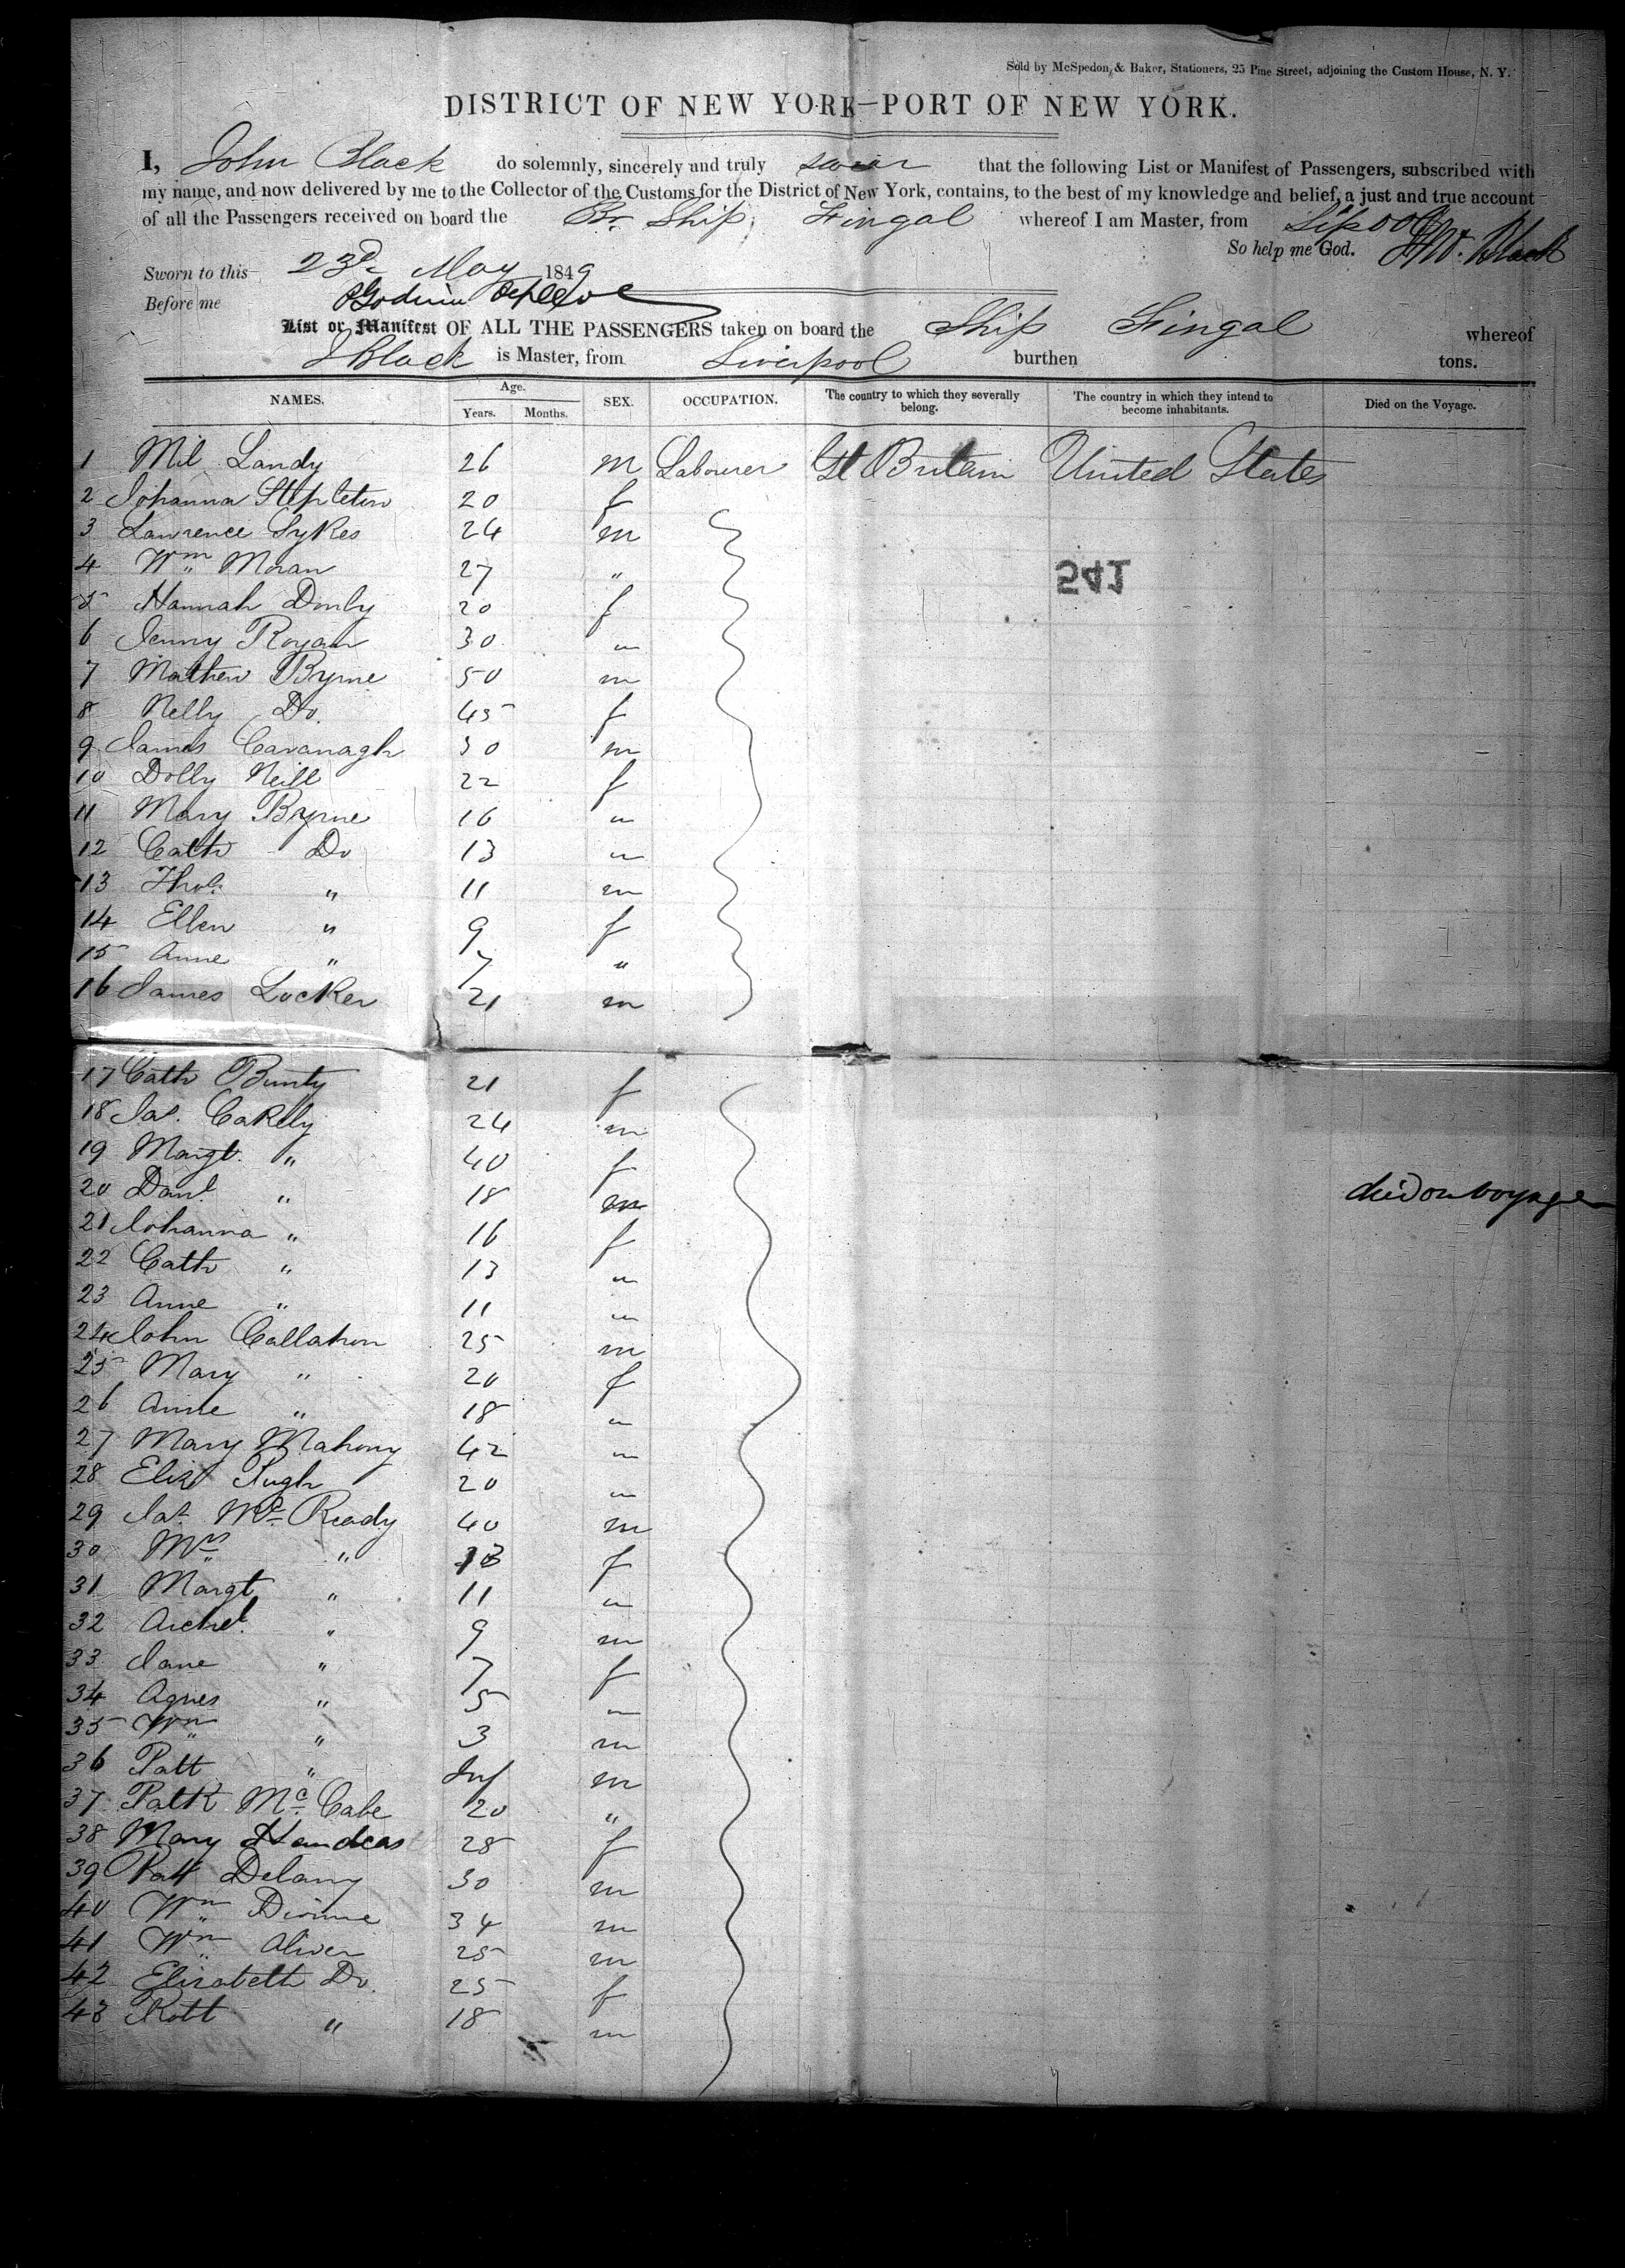 Sold by McSpedon & Baker, Stationers, 25 Pine Street, adjoining the Custom House, N. Y.
DISTRICT OF NEW YORK—PORT OF NEW YORK.
I, John Black do solemnly, sincerely and truly swear that the following List or Manifest of Passengers, subscribed with
my name, and now delivered by me to the Collector of the Customs for the District of New York, contains, to the best of my knowledge and belief, a just and true account
of all the Passengers received on board the Br. Ship Fingal whereof I am Master, from L'pool
So help me God. Jno. Black
Sworn to this 23d May 1849
Before me
List or Manifest OF ALL THE PASSENGERS taken on board the Ship Fingal whereof
J Black is Master, from Liverpool burthen tons.
NAMES. Age. Years. Months. SEX. OCCUPATION. The country to which they severally belong. The country in which they intend to become inhabitants. Died on the Voyage.
1 Mil Landy 26 m Labourer Gt Britain United States
2 Johanna Stapleton 20 f
3 Lawrence Sykes 24 m
4 Wm Moran 27 "
541
5 Hannah 20 f
6 Jenny 30 "
7 Mathew Byrne 50 m
8 Nelly Do. 45 f
9 James Cavanagh 30 m
10 Dolly Neill 22 f
11 Mary Byrne 16 "
12 Cath Do 13 "
13 Thos. " 11 m
14 Ellen " 9 f
15 Anne " 7 "
16 James Locker 21 m
17 Cath Bunty 21 f
18 Jas. 24 m
19 Margt. " 40 f
20 Danl. " 18 m died on voyage
21 Johanna " 16 f
22 Cath " 13 "
23 Anne " 11 "
24 John Callahan 25 m
25 Mary " 20 f
26 Anne " 18 "
27 Mary Mahony 42 "
28 Eliz Pugh 20 "
29 Jas. Mc Ready 40 m
30 Mrs " f
31 Margt " 11 "
32 Archd. " 9 m
33 Jane " 7 f
34 Agnes " 5 "
35 Wm " 3 m
36 Patt " Inf m
37 Patk Mc Cabe 20 "
38 Mary 28 f
39 Patt Delany 30 m
40 Wm 34 m
41 Wm Oliver 25 m
42 Elizabeth Do. 25 f
43 Robt " 18 m